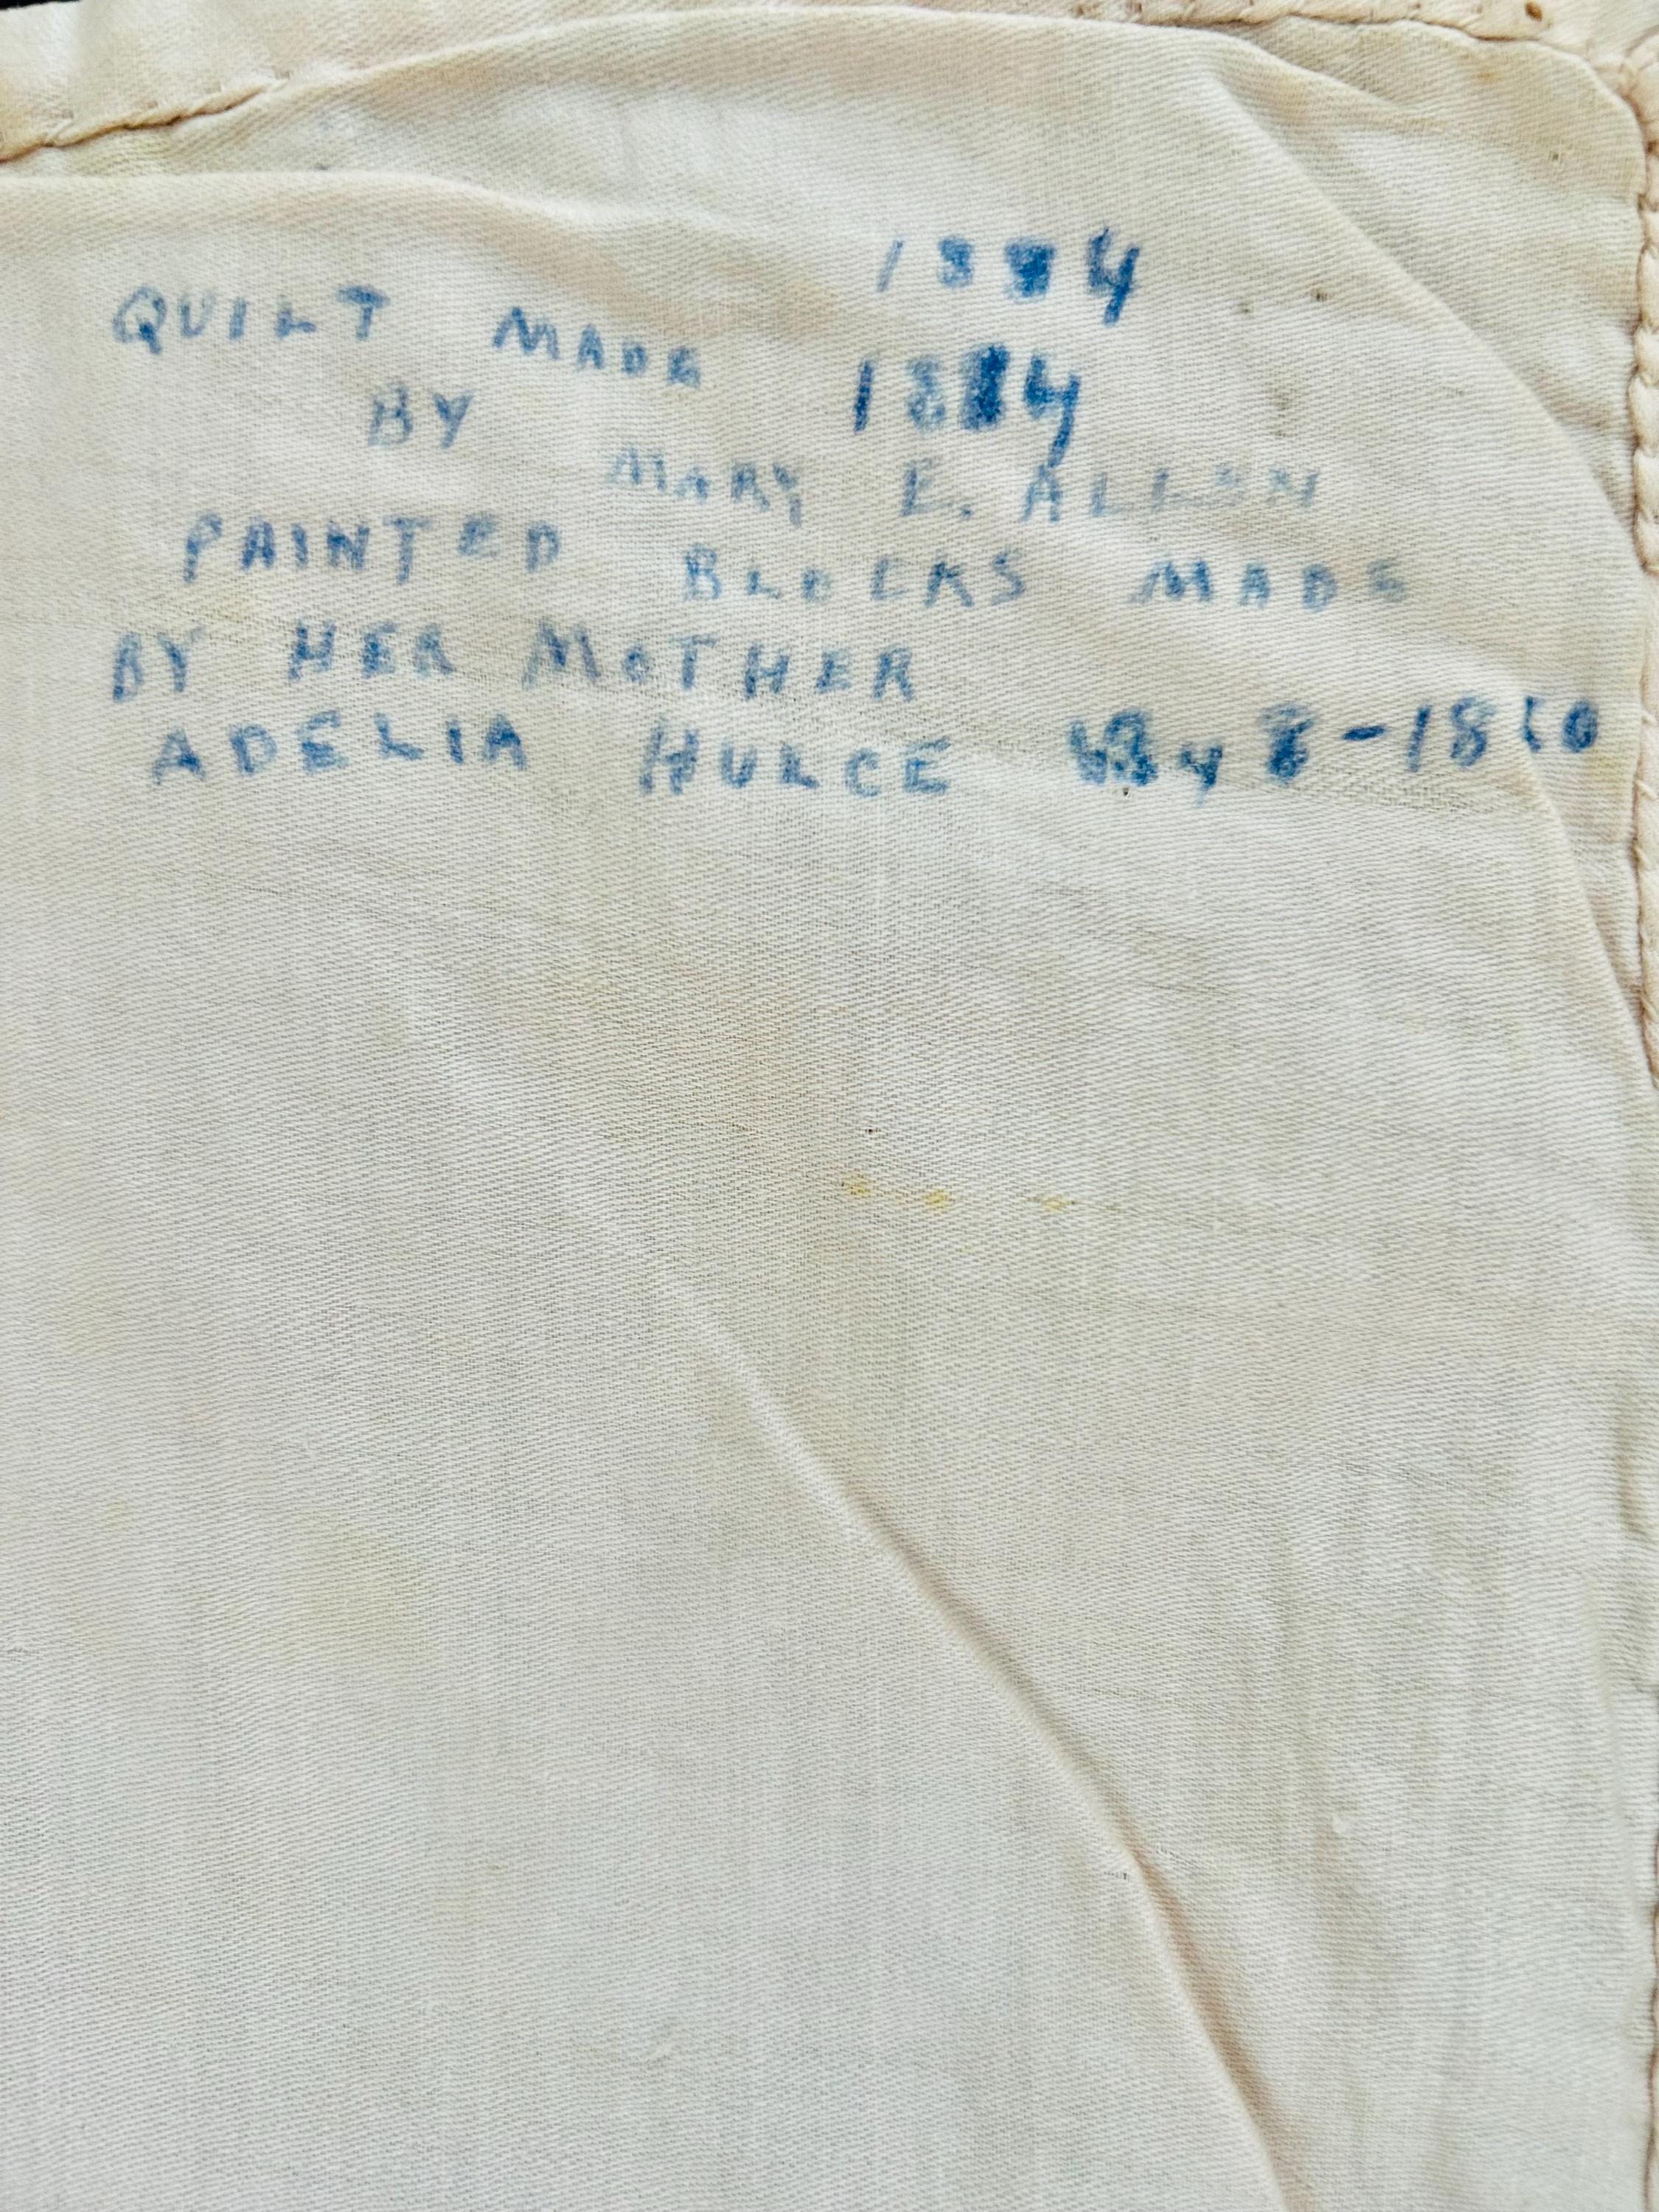 1884
QUILT MADE 1884
BY MARY E. ALLEN
PAINTED BLOCKS MADE
BY HER MOTHER
ADELIA HULCE